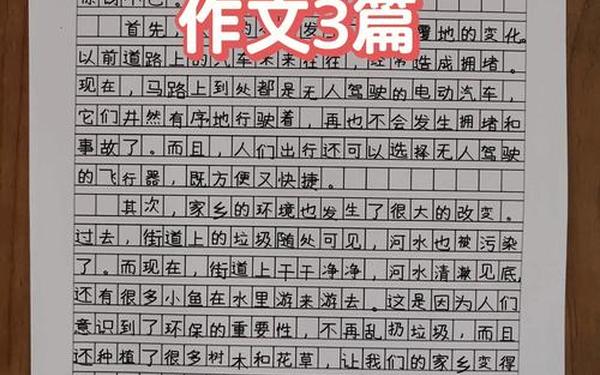 作文3篇
首先，的发覆地的变化。
以前道路上的汽车来来往往，经常造成拥堵。
现在，马路上到处都是无人驾驶的电动汽车，
它们井然有序地行驶着，再也不会发生拥堵和
事故了。而且，人们出行还可以选择无人驾驶
的飞行器，既方便又快捷。
其次，家乡的环境也发生了很大的改变。
过去，街道上的垃圾随处可见，河水也被污染
了。而现在，街道上干干净净，河水清澈见底，
还有很多小鱼在水里游来游去。这是因为人们
意识到了环保的重要性，不再乱扔垃圾，而且
还种植了很多树木和花草，让我们的家乡变得